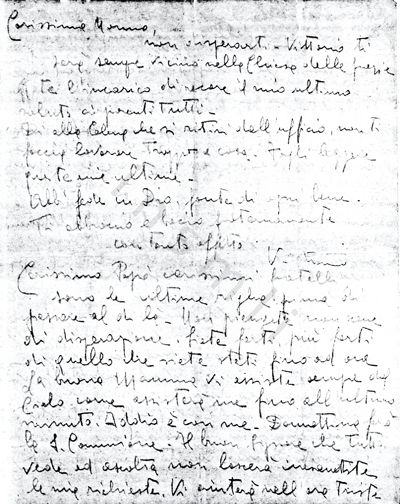 Carissima Mamma,
non disperarti. Vittorio ti
sarà sempre vicino nella Chiesa delle grazie
ti fa l'incarico di recare il mio ultimo
saluto ai parenti tutti.
Di' alla che si ritiri dall'ufficio, non ti
faccia lavorare troppo a casa. Fagli leggere
queste mie ultime.
Abbi fede in Dio, fonte di ogni bene.
Ti abbraccio e bacio fortemente
con tanto affetto.
Vittorio
Carissimo Papà, carissimi fratelli
sono le ultime righe prima di
passare al di là. Non piangete, non
di disperazione. Siate forti, più forti
di quello che siete stati fino ad ora
La buona Mamma vi assiste sempre dal
Cielo come assisterà me fino all'ultimo
minuto. Addio è con me. Domattina farò
la S. Comunione. Il buon Signore che tutti
vede ed ascolta non lascerà inesaudite
le mie richieste. Vi aiuterà nell'ora triste